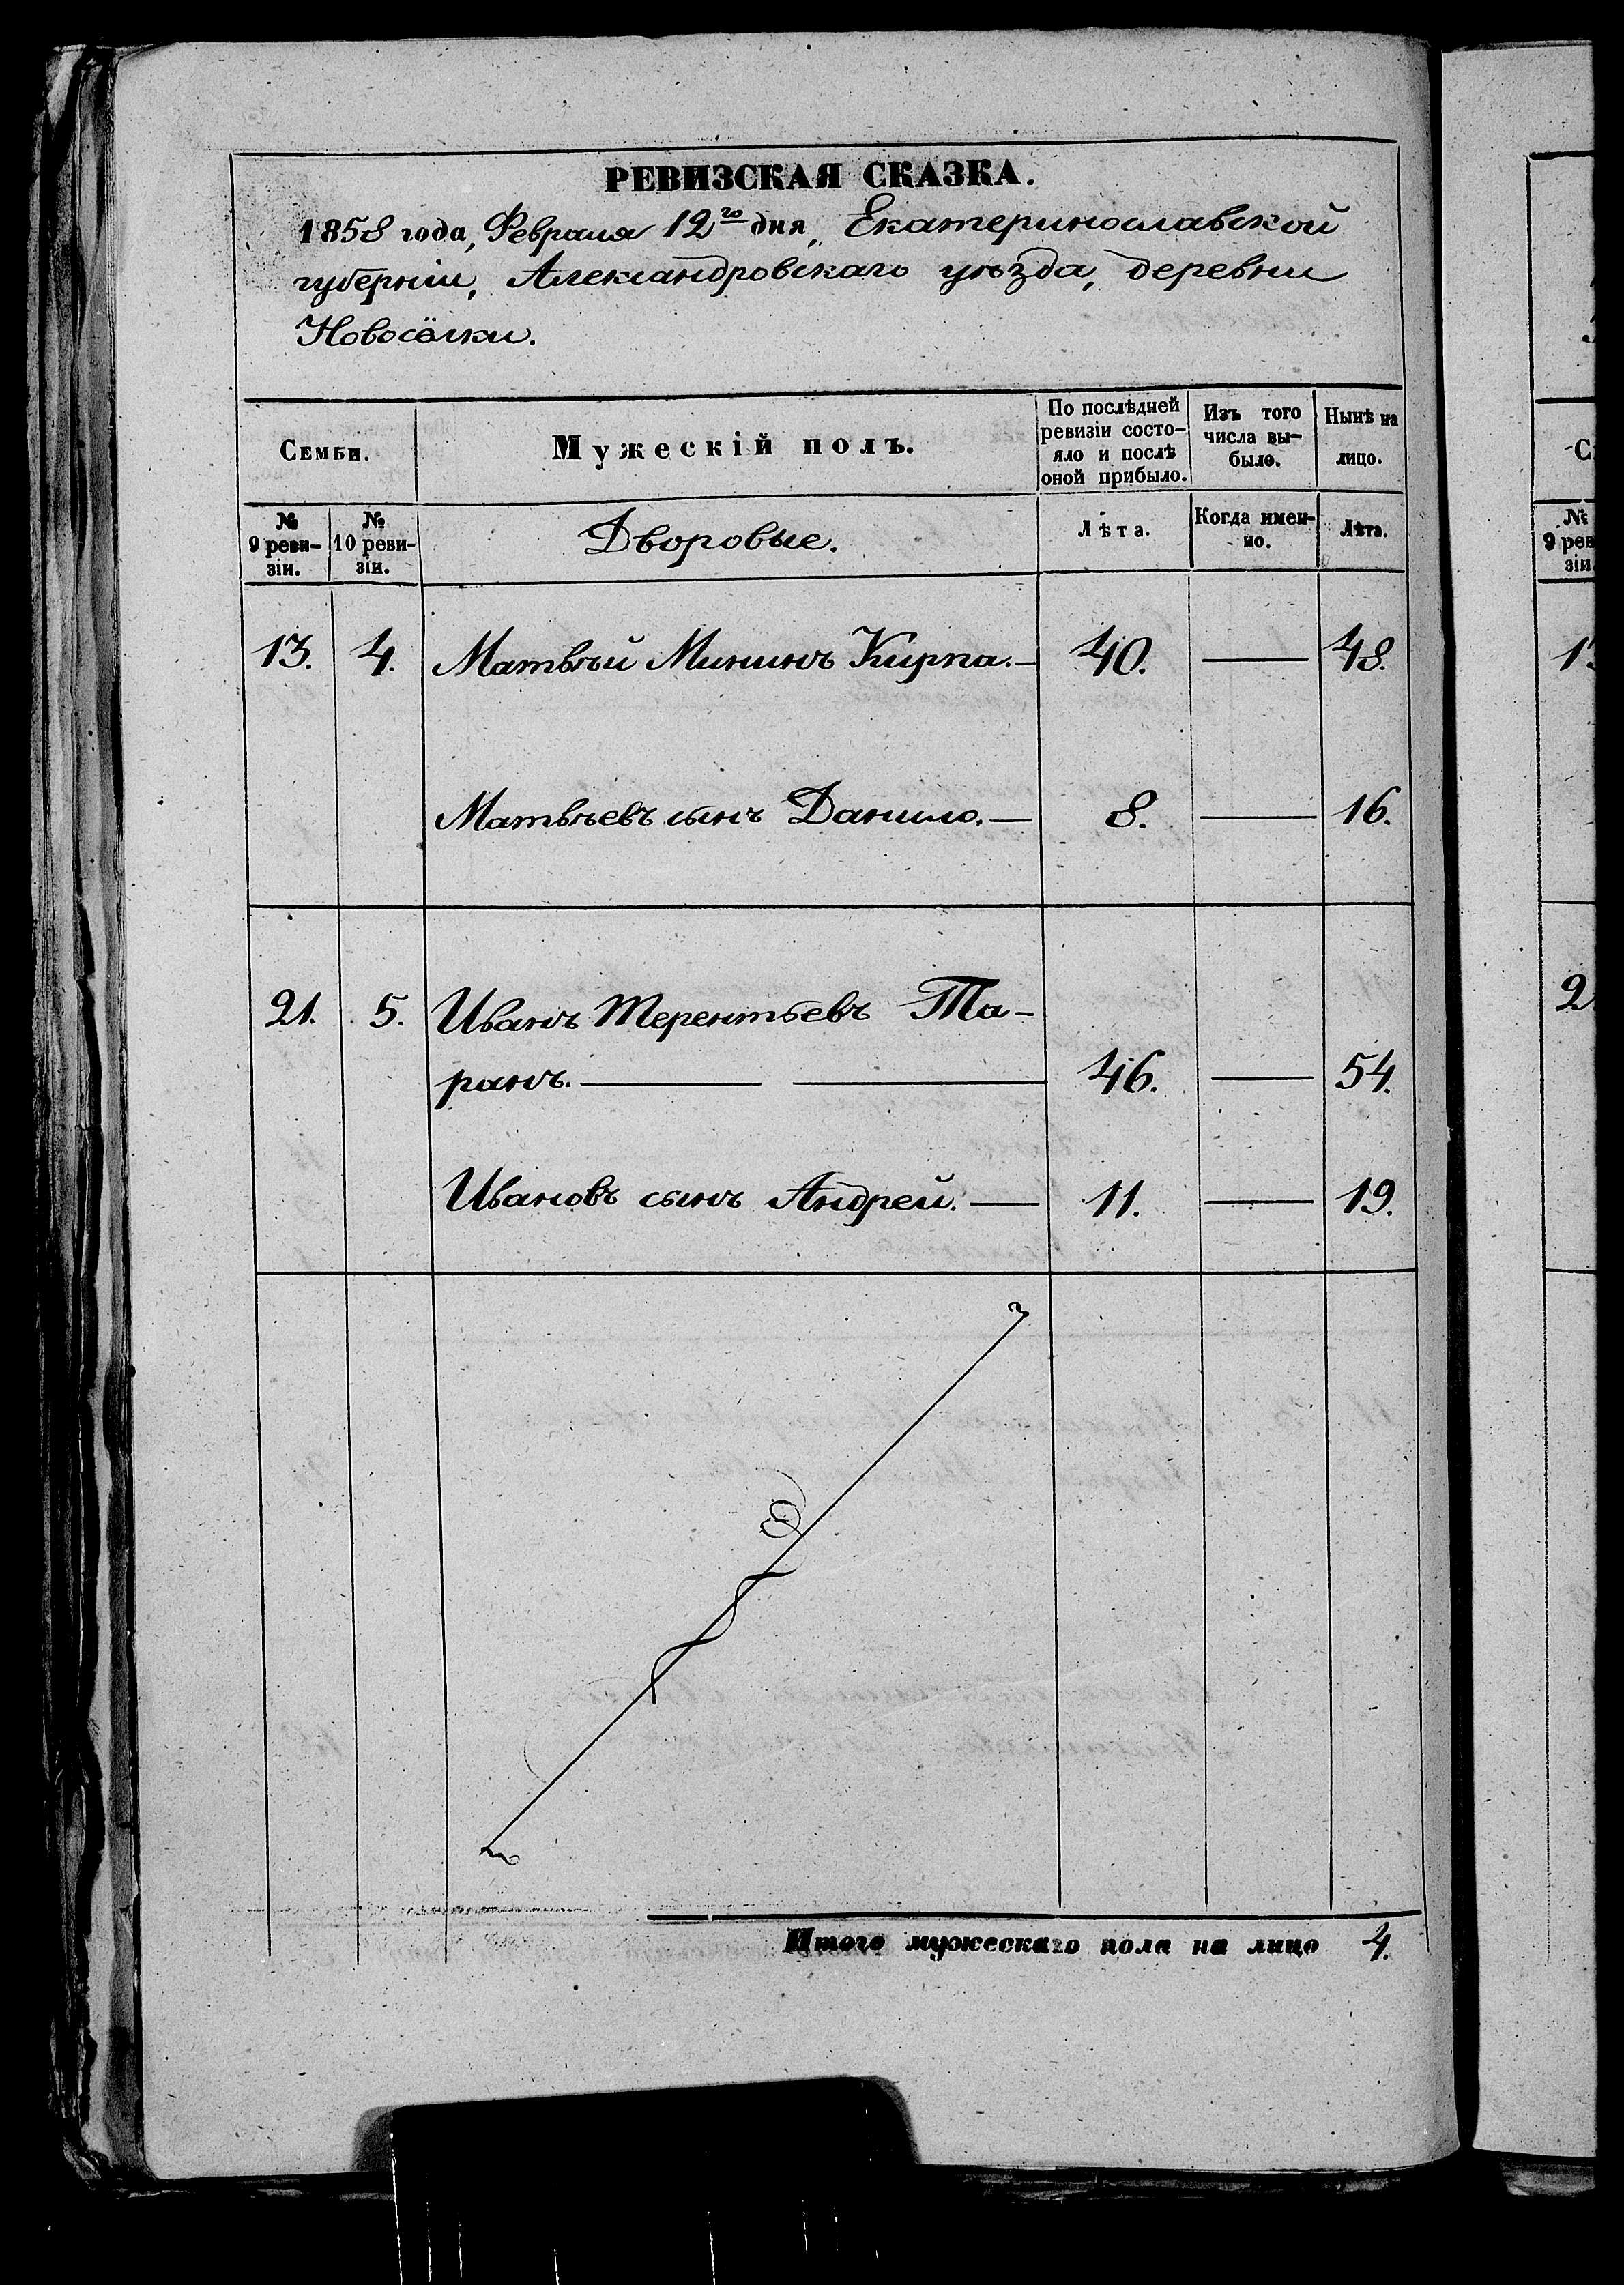 РЕВИЗСКАЯ СКАЗКА.
1858 года, Февраля 12го дня, Екатеринославской
губерніи, Александровскаго уѣзда, деревни
Новосёлки.
Семьи.
Мужескій полъ.
По послѣдней ревизіи состо-
яло и послѣ
оной прибыло.
Изъ того
числа вы-
было.
Нынѣ на
лицо.
№
9 реви-
зіи.
№
10 реви-
зіи.
Дворовые.
Лѣта.
Когда имен-
но.
Лѣта.
13. 4. Матвѣй Мининъ Кирпа.— 40. — 48.
Матвѣевъ сынъ Данило.— 8. — 16.
21. 5. Иванъ Терентьевъ Та-
ранъ. — — 46. — 54.
Ивановъ сынъ Андрей. — 11. — 19.
Итого мужескаго пола на лицо 4.
№
9 рев
зіи